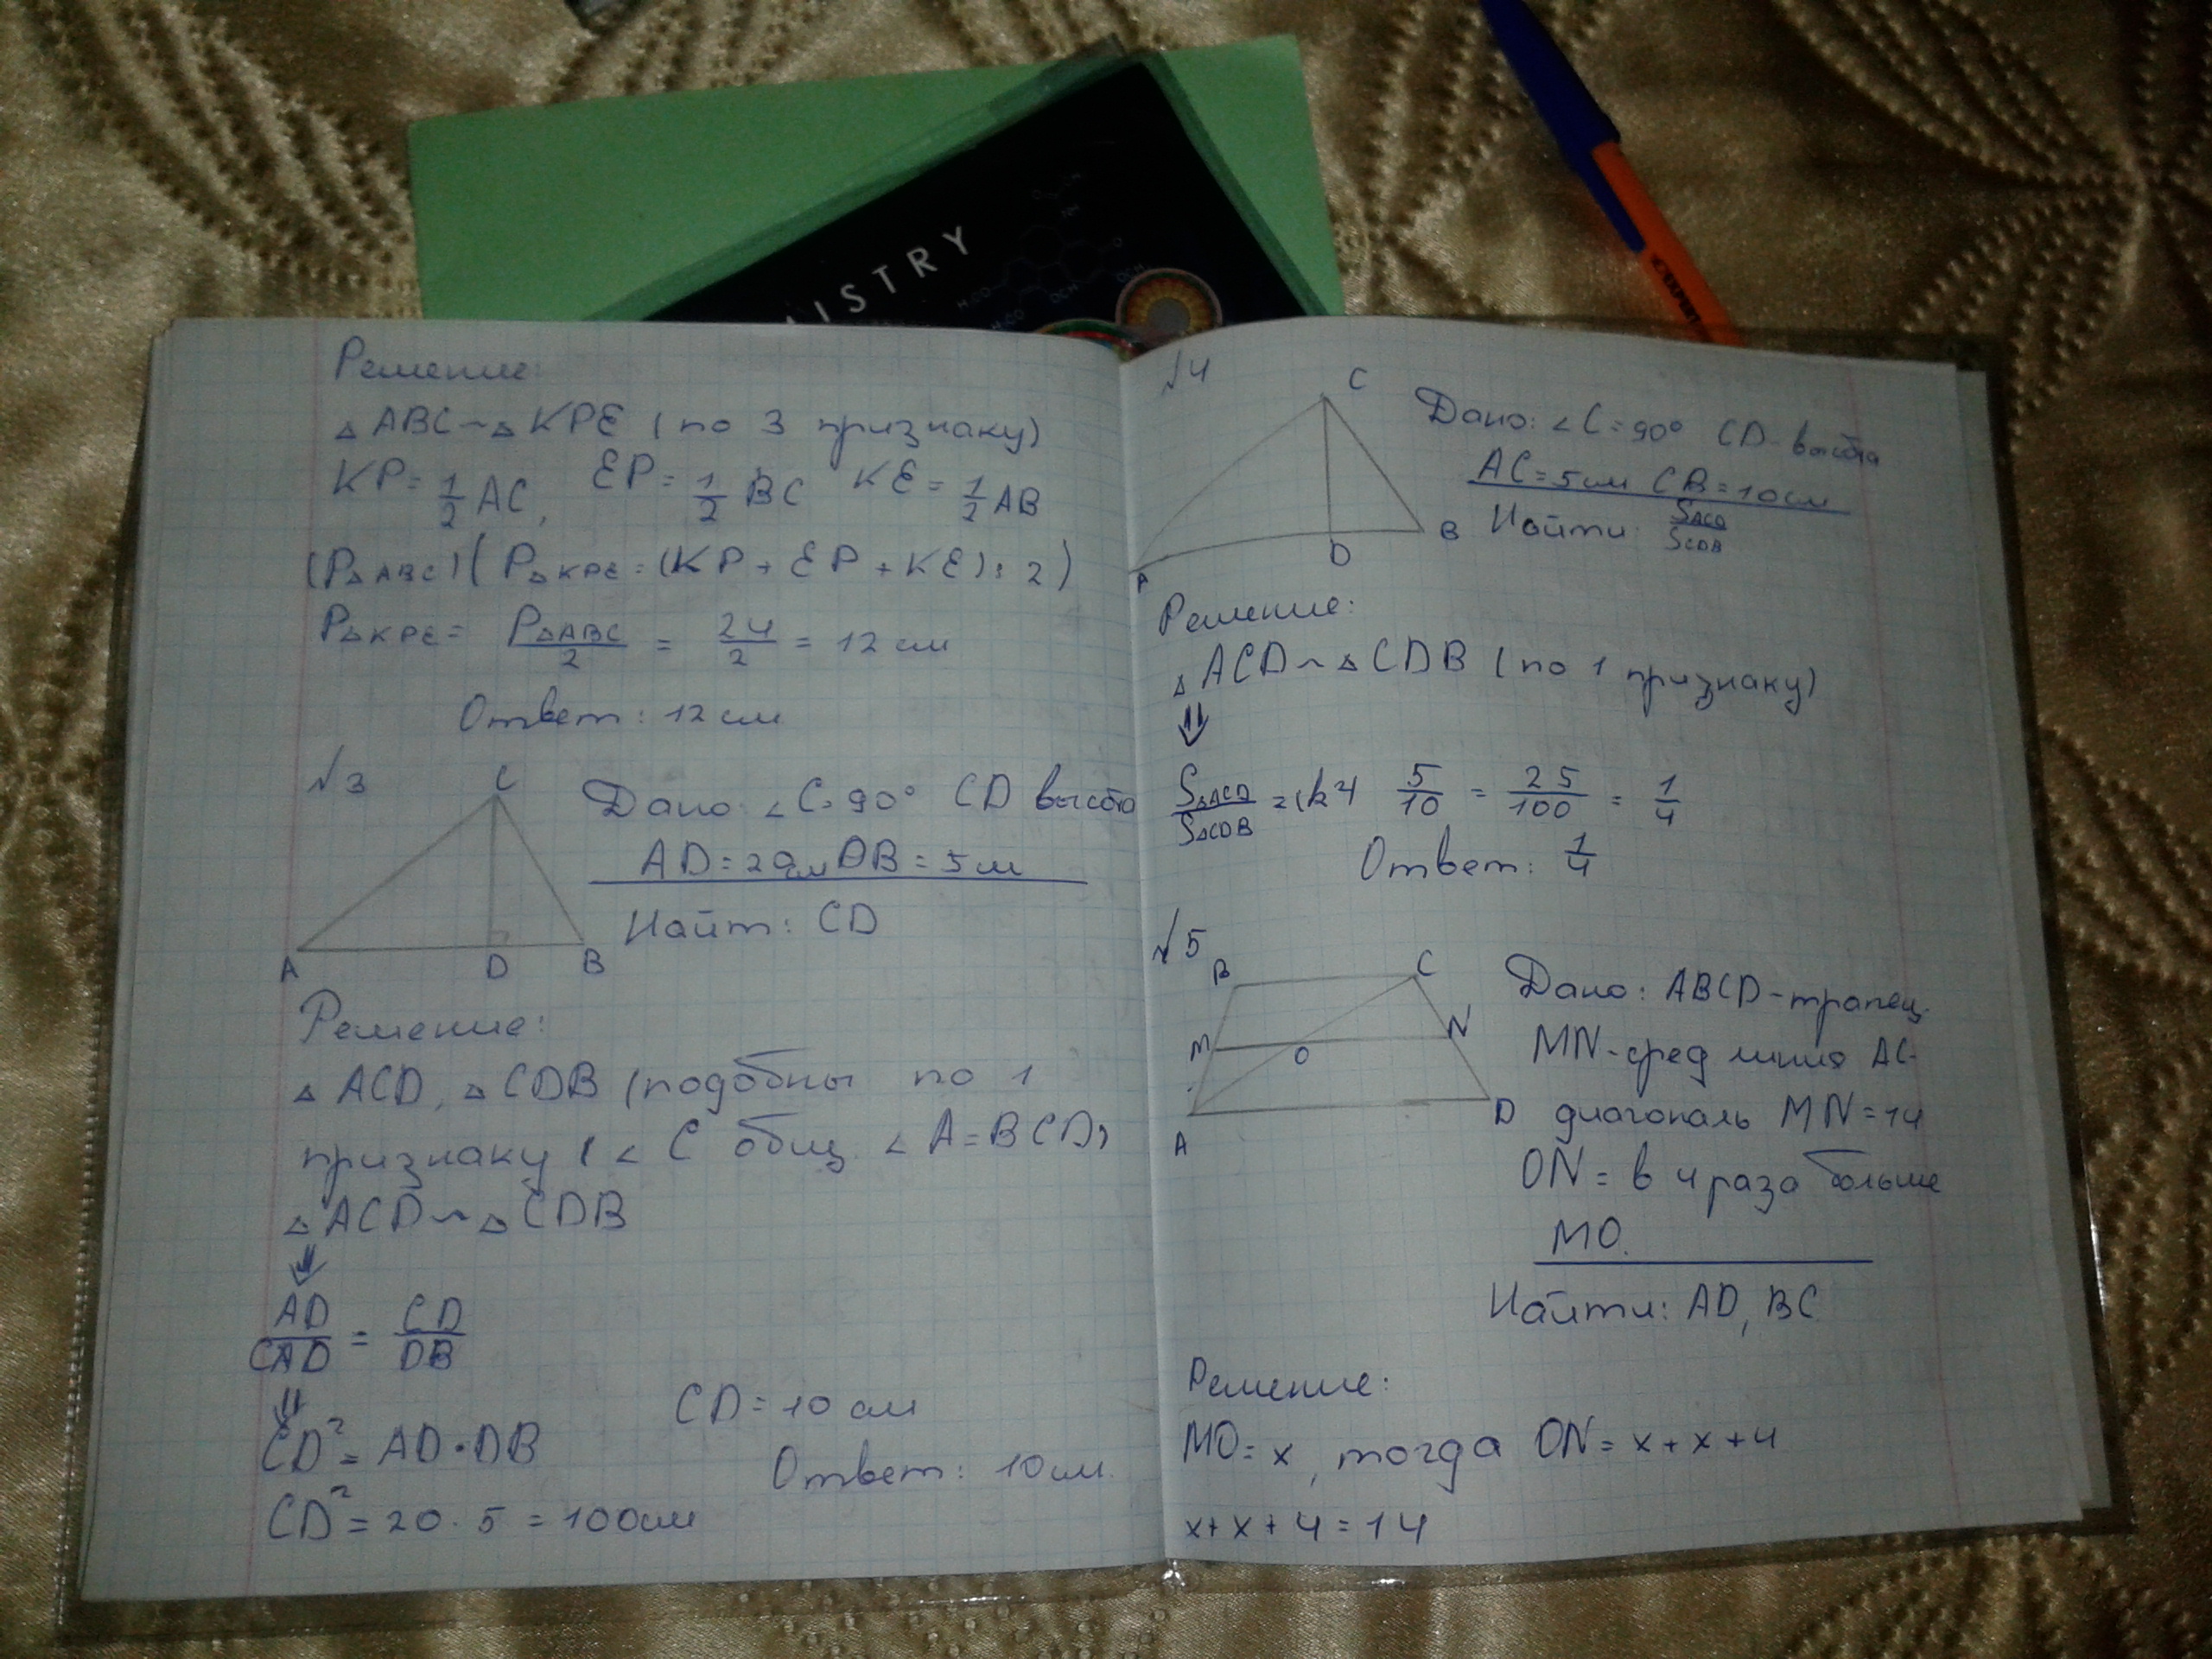 ISTRY
Решение:
△ABC ~ △KPE (по 3 признаку)
KP = 1/2 AC, EP = 1/2 BC KE = 1/2 AB
(P△ABC) (P△KPE = (KP + EP + KE) : 2)
P△KPE = P△ABC/2 = 24/2 = 12 см
Ответ: 12 см
№3
C
A D B
Дано: ∠C = 90° CD высота
DB = 5 см
Найт: CD
Решение:
△ACD, △CDB (подобны по 1
признаку (∠C общ. ∠A = BCD)
△ACD ~ △CDB
⇓
CD/DB
⇓
CD² = AD · DB
CD² = 20 · 5 = 100 см
CD = 10 см
Ответ: 10 см.
№4
C
A D B
Дано: ∠C = 90° CD - высота
AC = 5 см CB = 10 см
Найти: SACD/SCDB
Решение:
△ACD ~ △CDB (по 1 признаку)
⇓
S△ACD/S△CDB = 5/10 = 25/100 = 1/4
Ответ: 1/4
№5
B C
M O N
A D
Дано: ABCD - трапец.
MN - сред линия AC -
диагональ MN = 14
ON = в 4 раза больше
MO.
Найти: AD, BC
Решение:
MO = x, тогда ON = x + x + 4
x + x + 4 = 14